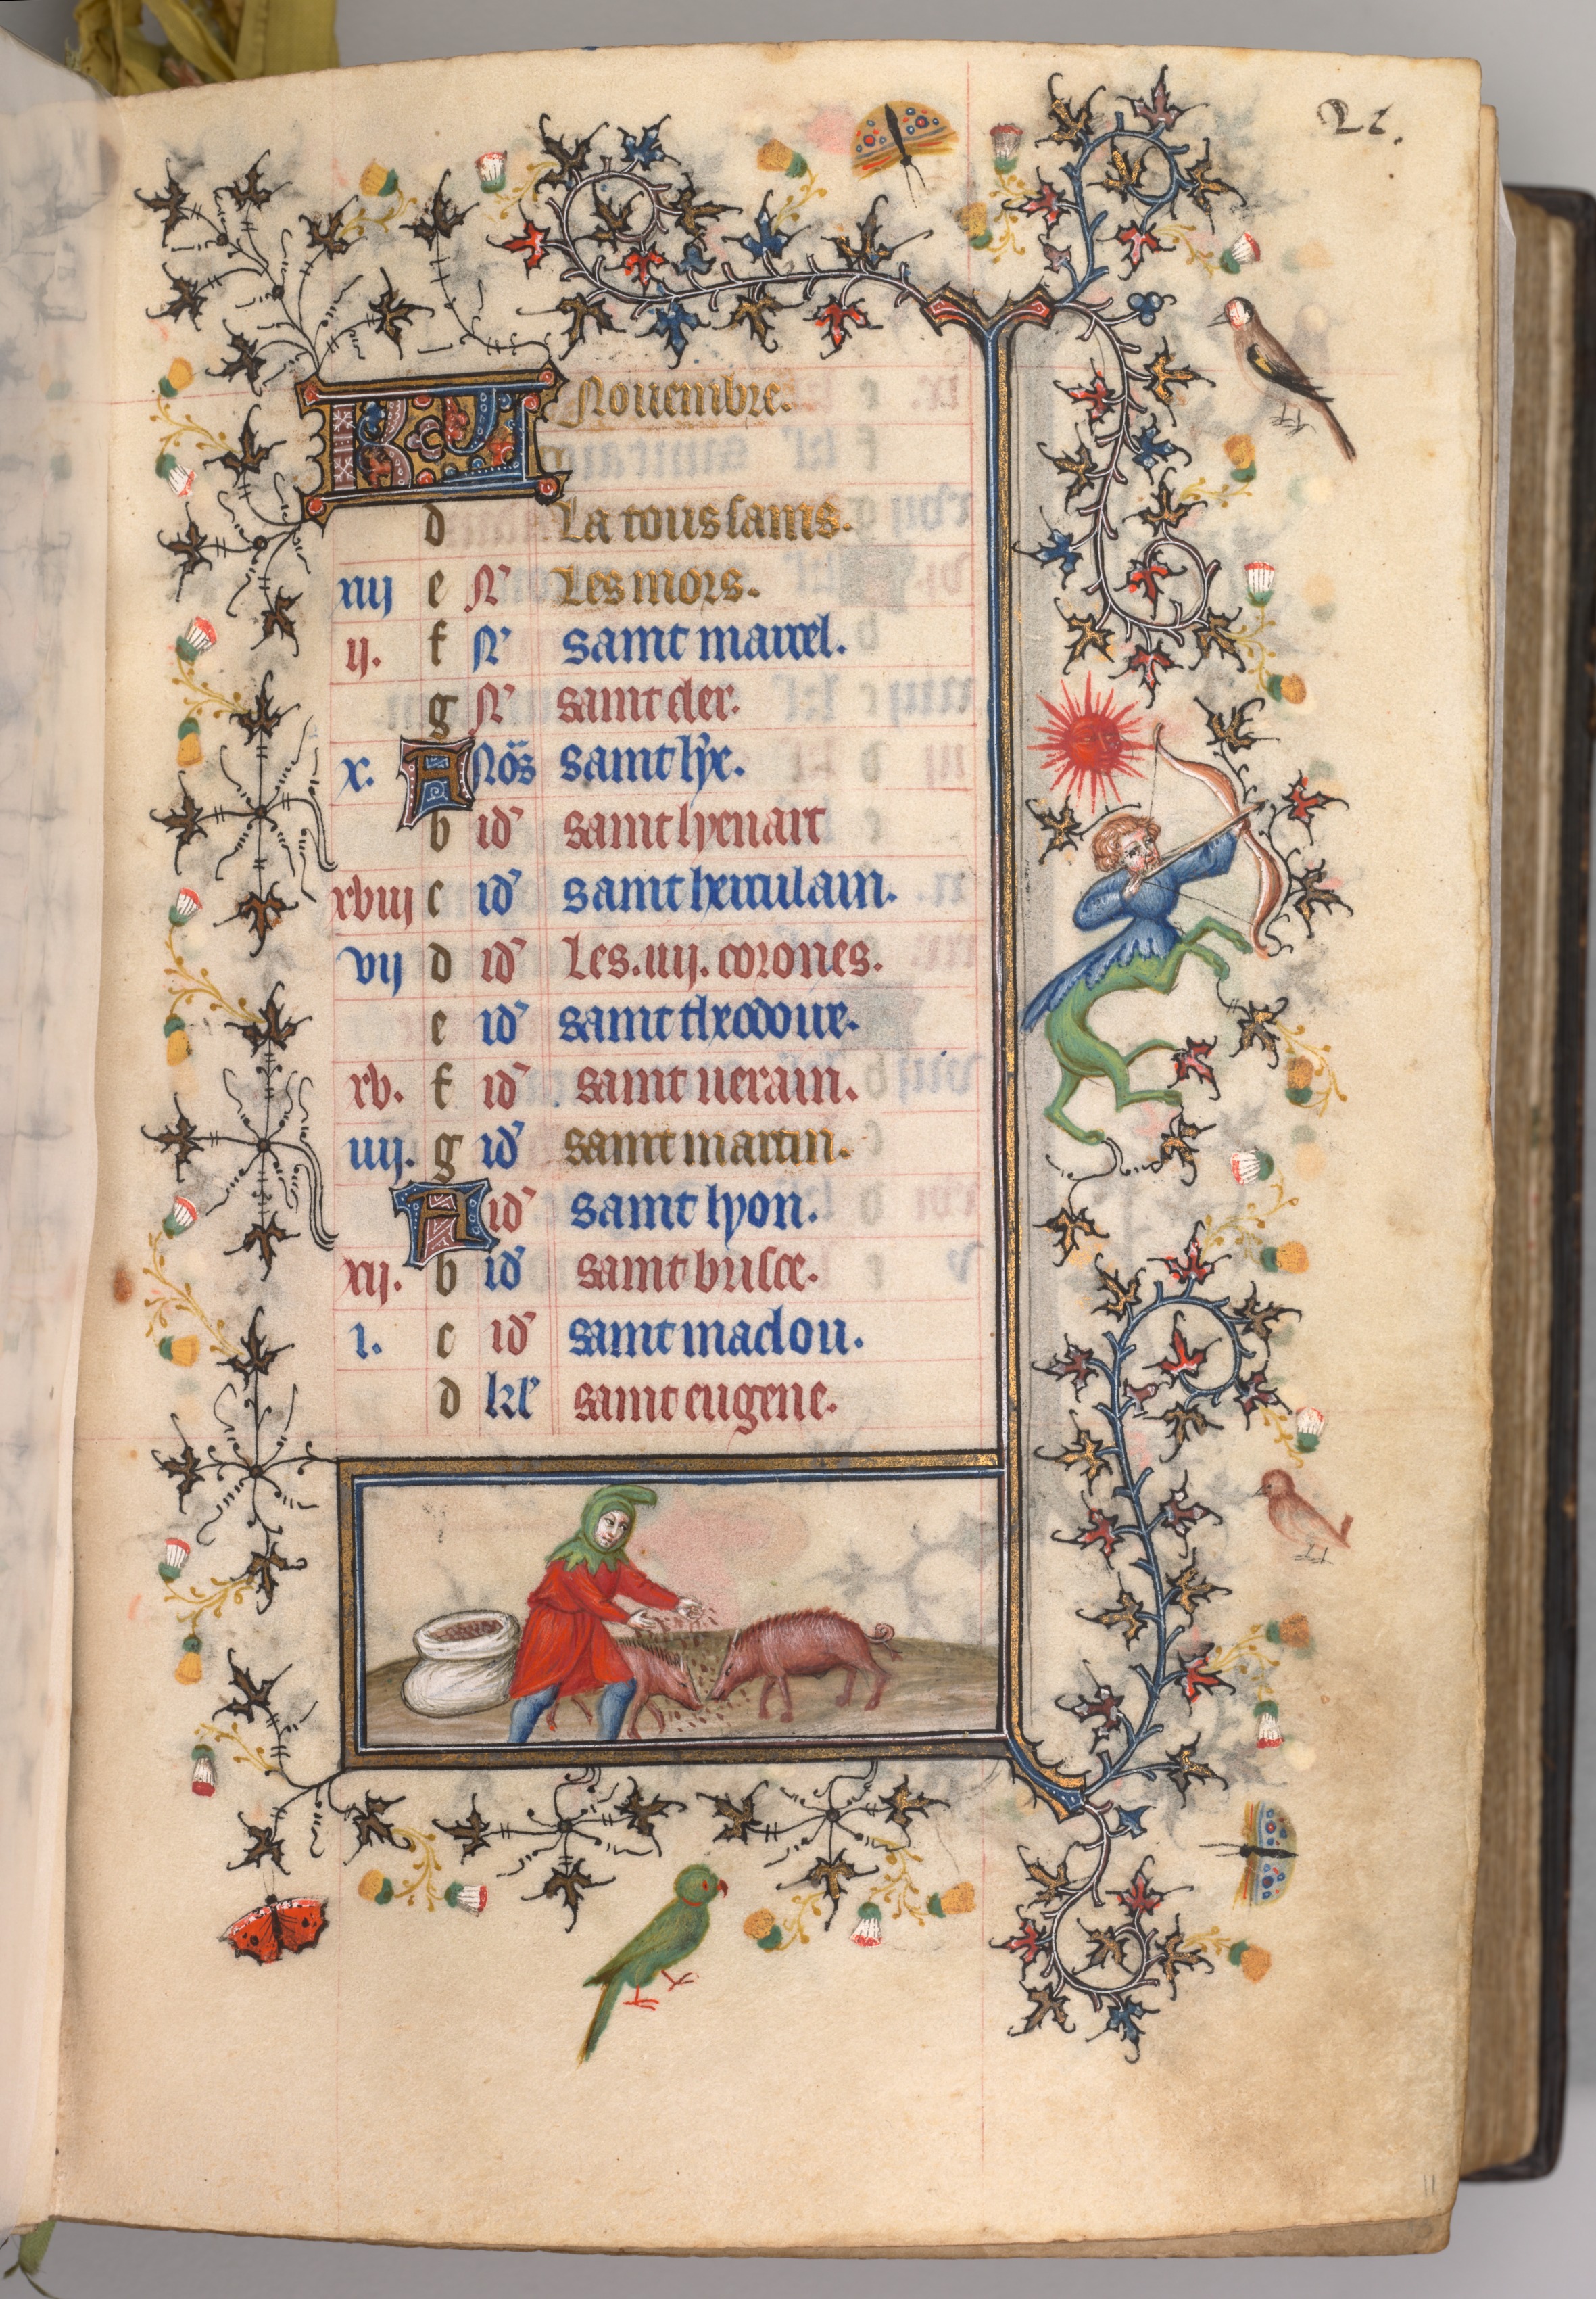 21.
KL Nouembre.
d La toussains.
xiij e N' Les mors.
ij. f N' saint marcel.
g N' saint cler.
x. A Nōs saint lye.
b id' saint lyenart
xviij c id' saint herculain.
vij d id' Les .iiij. corones.
e id' saint theodore.
xv. f id' saint uerain.
iiij. g id' saint martin.
A id' saint lyon.
xij. b id' saint brisce.
i. c id' saint maclou.
d kl' saint eugene.
11